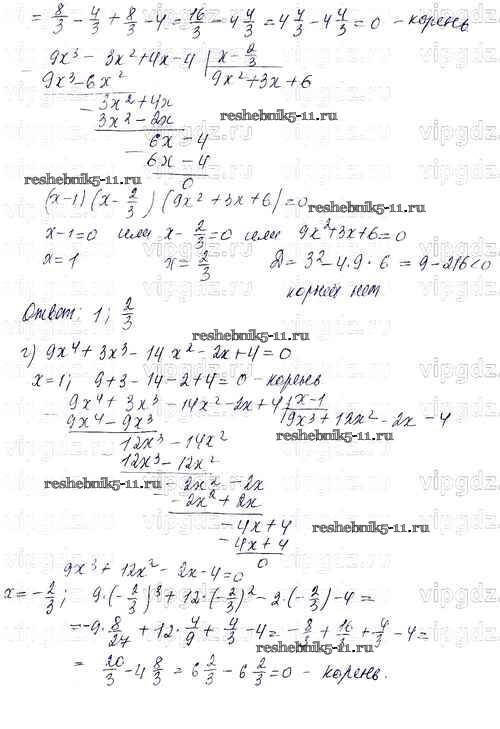 = 8/3 - 4/3 + 8/3 - 4 = 16/3 - 4 4/3 = 4 4/3 - 4 4/3 = 0 - корень
9x³ - 3x² + 4x - 4 | x - 2/3
9x³ - 6x² 9x² + 3x + 6
- 3x² + 4x
3x² - 2x
6x - 4
- 6x - 4
0
reshebnik5-11.ru
reshebnik5-11.ru
(x-1) (x - 2/3) (9x² + 3x + 6) = 0
x-1=0 или x - 2/3 = 0 или 9x² + 3x + 6 = 0
x = 1 x = 2/3 Д = 3² - 4·9·6 = 9 - 216 < 0
корней нет
Ответ: 1; 2/3
reshebnik5-11.ru
г) 9x⁴ + 3x³ - 14x² - 2x + 4 = 0
x = 1; 9 + 3 - 14 - 2 + 4 = 0 - корень
9x⁴ + 3x³ - 14x² - 2x + 4 | x - 1
9x⁴ - 9x³ 9x³ + 12x² - 2x - 4
12x³ - 14x²
12x³ - 12x²
reshebnik5-11.ru
- 2x² - 2x
- 2x² + 2x
- 4x + 4
- 4x + 4
0
reshebnik5-11.ru
9x³ + 12x² - 2x - 4 = 0
x = -2/3; 9·(-2/3)³ + 12·(-2/3)² - 2·(-2/3) - 4 =
= -9·8/27 + 12·4/9 + 4/3 - 4 = -8/3 + 16/3 + 4/3 - 4 =
reshebnik5-11.ru
= 20/3 - 4 8/3 = 6 2/3 - 6 2/3 = 0 - корень.